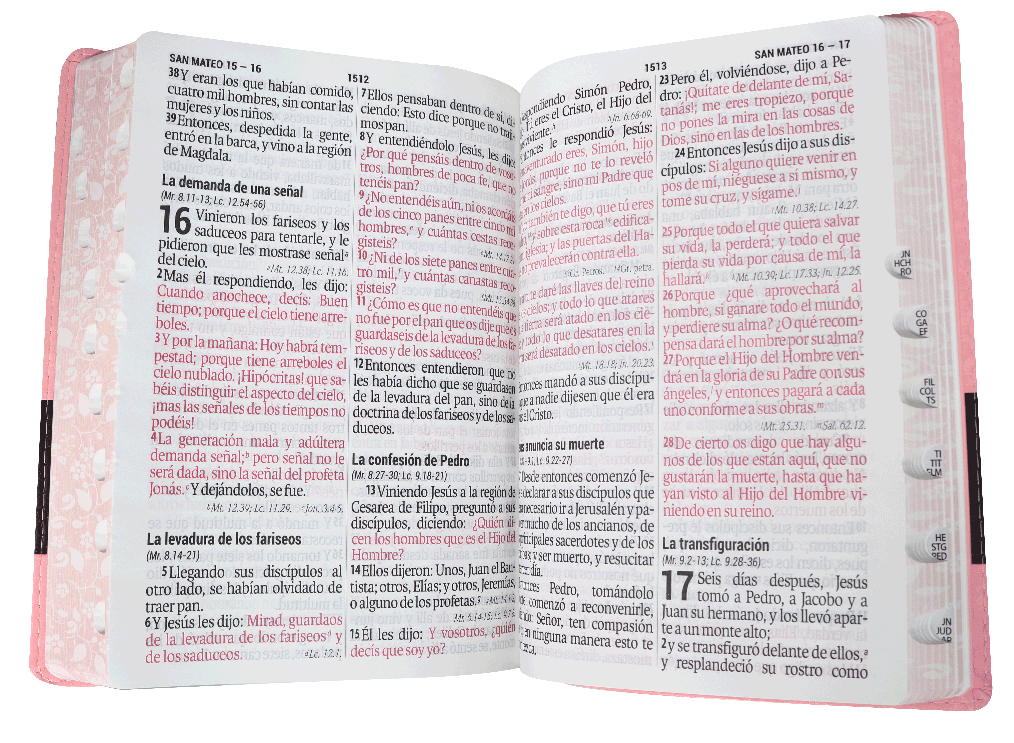 SAN MATEO 15 – 16
1512
38Y eran los que habían comido,
cuatro mil hombres, sin contar las
mujeres y los niños.
39Entonces, despedida la gente,
entró en la barca, y vino a la región
de Magdala.
La demanda de una señal
(Mr. 8.11-13; Lc. 12.54-56)
16 Vinieron los fariseos y los
saduceos para tentarle, y le
pidieron que les mostrase señalᵃ
del cielo.
ᵃMt. 12.38; Lc. 11.16.
2Mas él respondiendo, les dijo:
Cuando anochece, decís: Buen
tiempo; porque el cielo tiene arre-
boles.
3Y por la mañana: Hoy habrá tem-
pestad; porque tiene arreboles el
cielo nublado. ¡Hipócritas! que sa-
béis distinguir el aspecto del cielo,
¡mas las señales de los tiempos no
podéis!
4La generación mala y adúltera
demanda señal;ᵇ pero señal no le
será dada, sino la señal del profeta
Jonás.ᶜ Y dejándolos, se fue.
ᵇMt. 12.39; Lc. 11.29. ᶜJon. 3.4-5.
La levadura de los fariseos
(Mr. 8.14-21)
5Llegando sus discípulos al
otro lado, se habían olvidado de
traer pan.
6Y Jesús les dijo: Mirad, guardaos
de la levadura de los fariseosᵈ y
de los saduceos.
ᵈLc. 12.1.
7Ellos pensaban dentro de sí, di-
ciendo: Esto dice porque no traji-
mos pan.
8Y entendiéndolo Jesús, les dijo:
¿Por qué pensáis dentro de voso-
tros, hombres de poca fe, que no
tenéis pan?
9¿No entendéis aún, ni os acordáis
de los cinco panes entre cinco mil
hombres,ᵉ y cuántas cestas reco-
gisteis?
10¿Ni de los siete panes entre cua-
tro mil,ᶠ y cuántas canastas reco-
gisteis?
11¿Cómo es que no entendéis que
no fue por el pan que os dije que os
guardaseis de la levadura de los fa-
riseos y de los saduceos?
12Entonces entendieron que no
les había dicho que se guardasen
de la levadura del pan, sino de la
doctrina de los fariseos y de los sa-
duceos.
La confesión de Pedro
(Mr. 8.27-30; Lc. 9.18-21)
13Viniendo Jesús a la región de
Cesarea de Filipo, preguntó a sus
discípulos, diciendo: ¿Quién di-
cen los hombres que es el Hijo del
Hombre?
14Ellos dijeron: Unos, Juan el Bau-
tista; otros, Elías; y otros, Jeremías,
o alguno de los profetas.
15Él les dijo: Y vosotros, ¿quién
decís que soy yo?
1513
SAN MATEO 16 – 17
Simón Pedro,
eres el Cristo, el Hijo del
Jn. 6.68-69.
le respondió Jesús:
eres, Simón, hijo
porque no te lo reveló
sangre, sino mi Padre que
en los cielos.
también te digo, que tú eres
y sobre esta roca edifica-
iglesia; y las puertas del Ha-
prevalecerán contra ella.
Gr. Petros. Gr. petra.
te daré las llaves del reino
cielos; y todo lo que atares
tierra será atado en los cie-
todo lo que desatares en la
será desatado en los cielos.
Mt. 18.18; Jn. 20.23.
mandó a sus discípu-
a nadie dijesen que él era
el Cristo.
anuncia su muerte
Lc. 9.22-27)
Desde entonces comenzó Je-
declarar a sus discípulos que
necesario ir a Jerusalén y pa-
mucho de los ancianos, de
principales sacerdotes y de los
y ser muerto, y resucitar
día.
Pedro, tomándolo
comenzó a reconvenirle,
Señor, ten compasión
en ninguna manera esto te
23Pero él, volviéndose, dijo a Pe-
dro: ¡Quítate de delante de mí, Sa-
tanás!; me eres tropiezo, porque
no pones la mira en las cosas de
Dios, sino en las de los hombres.
24Entonces Jesús dijo a sus dis-
cípulos: Si alguno quiere venir en
pos de mí, niéguese a sí mismo, y
tome su cruz, y sígame.
Mt. 10.38; Lc. 14.27.
25Porque todo el que quiera salvar
su vida, la perderá; y todo el que
pierda su vida por causa de mí, la
hallará.ᵏ
ᵏMt. 10.39; Lc. 17.33; Jn. 12.25.
26Porque ¿qué aprovechará al
hombre, si ganare todo el mundo,
y perdiere su alma? ¿O qué recom-
pensa dará el hombre por su alma?
27Porque el Hijo del Hombre ven-
drá en la gloria de su Padre con sus
ángeles,ˡ y entonces pagará a cada
uno conforme a sus obras.ᵐ
ˡMt. 25.31. ᵐSal. 62.12.
28De cierto os digo que hay algu-
nos de los que están aquí, que no
gustarán la muerte, hasta que ha-
yan visto al Hijo del Hombre vi-
niendo en su reino.
La transfiguración
(Mr. 9.2-13; Lc. 9.28-36)
17 Seis días después, Jesús
tomó a Pedro, a Jacobo y a
Juan su hermano, y los llevó apar-
te a un monte alto;
2y se transfiguró delante de ellos,ᵃ
y resplandeció su rostro como
JN
HCH
RO
CO
GA
EF
FIL
COL
TS
TI
TIT
FLM
HE
STG
PED
JN
JUD
AP